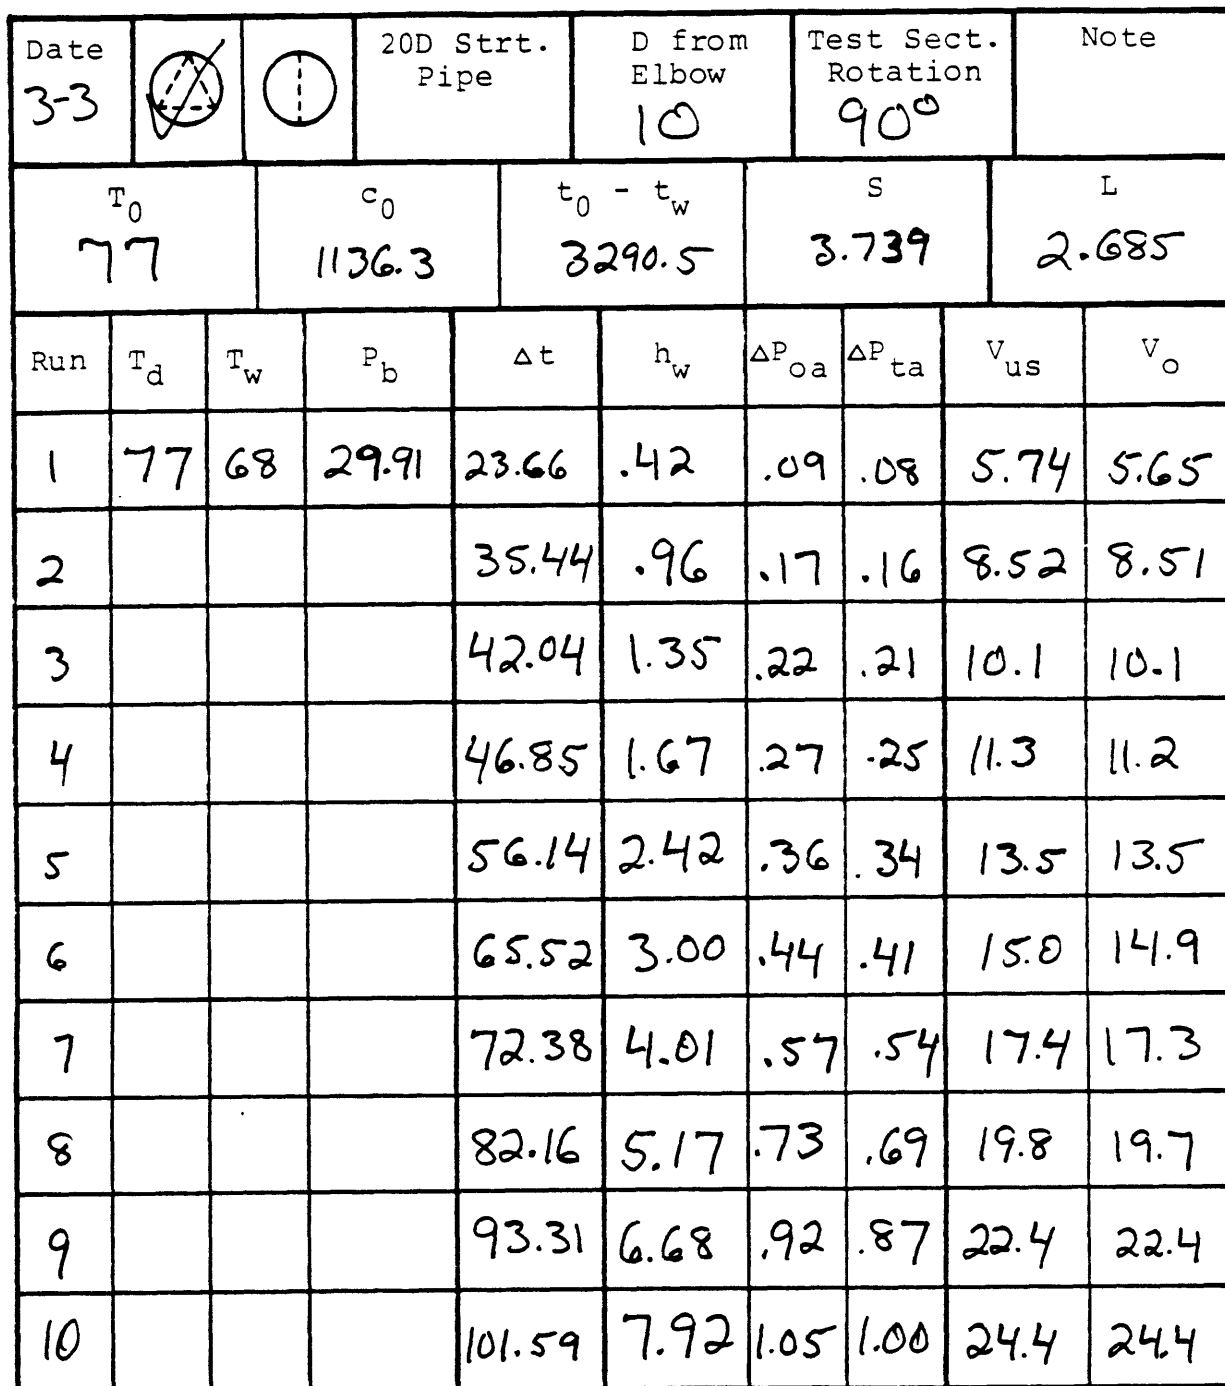 Date 20D Strt. D from Test Sect. Note
Pipe Elbow Rotation
3-3 10 90°
T0 c0 t0 - tw S L
77 1136.3 3290.5 3.739 2.685
Run Td Tw Pb Δt hw ΔPoa ΔPta Vus Vo
1 77 68 29.91 23.66 .42 .09 .08 5.74 5.65
2 35.44 .96 .17 .16 8.52 8.51
3 42.04 1.35 .22 .21 10.1 10.1
4 46.85 1.67 .27 .25 11.3 11.2
5 56.14 2.42 .36 .34 13.5 13.5
6 65.52 3.00 .44 .41 15.0 14.9
7 72.38 4.01 .57 .54 17.4 17.3
8 82.16 5.17 .73 .69 19.8 19.7
9 93.31 6.68 .92 .87 22.4 22.4
10 101.59 7.92 1.05 1.00 24.4 24.4